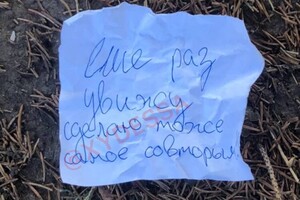 Еще раз
увижу
сделаю тоже
самое совторым